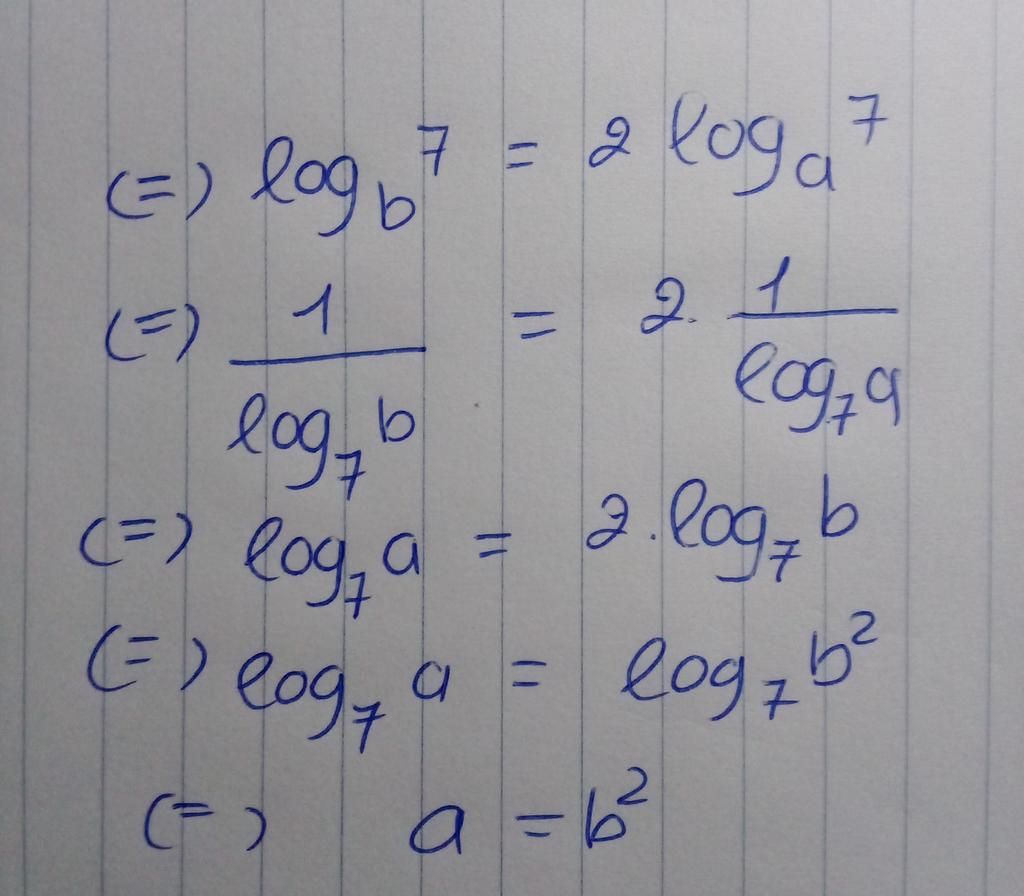 (=) log_b 7 = 2 log_a 7
(=) 1/(log_7 b) = 2. 1/(log_7 a)
(=) log_7 a = 2. log_7 b
(=) log_7 a = log_7 b²
(=) a = b²